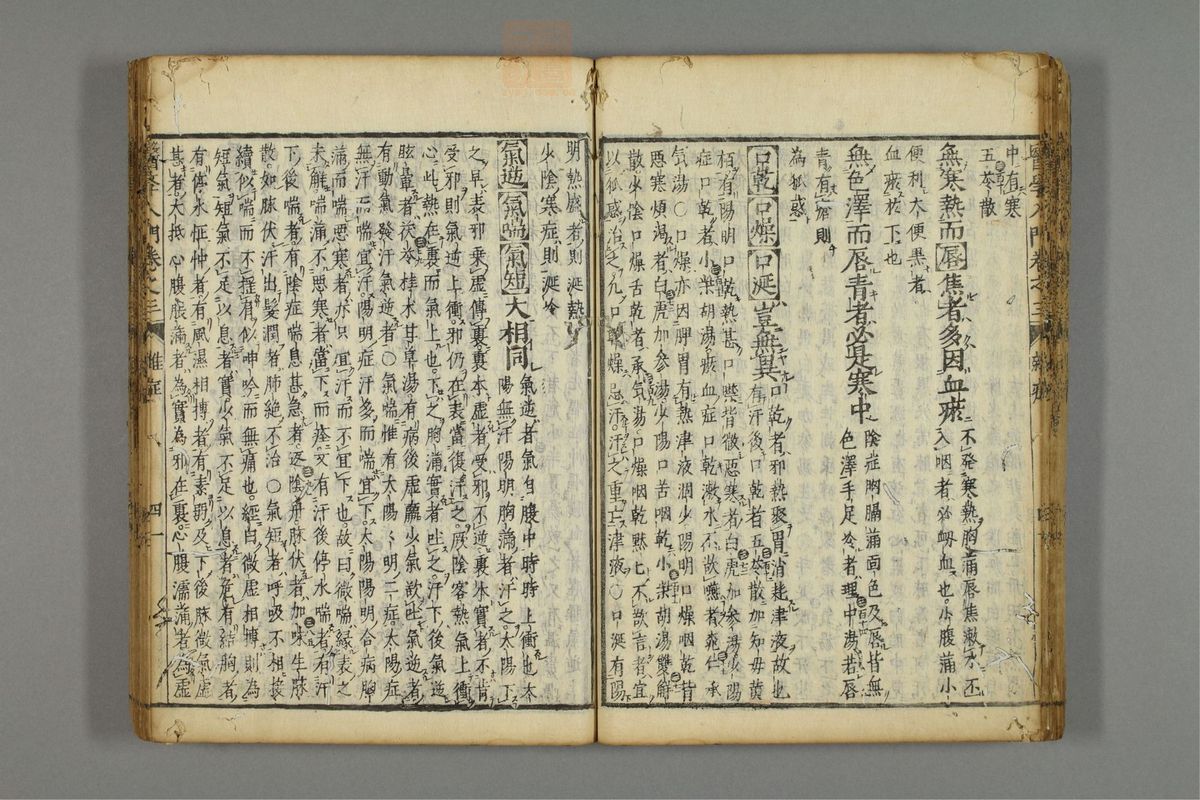 中有寒
五苓散
無寒熱而唇焦者多因血瘀
不發寒熱胸滿唇焦漱水不
入咽者必衂血也小腹滿小
便利大便黑者
血瘀於下也
無色澤而唇青者必是寒中
陰症胸膈滿面色及唇皆無
色澤手足冷者理中湯若唇
青有瘡則
為狐惑
口乾口燥口涎豈無異
口乾者邪熱聚胃消耗津液故也
有汗後口乾者五苓散加知母黃
栢有陽明口乾熱甚口背微惡寒者白虎加參湯少陽
症口乾者小柴胡湯瘀血症口乾漱水不欲嚥者桃仁承
氣湯○口燥亦因脾胃有熱津液潤少陽明口燥咽乾背
惡寒煩渴者白虎加參湯少陽口苦咽乾小柴胡湯
散少陰口燥舌乾者承氣湯口燥咽乾默七不欲言者宜
以狐惑治之凢口燥忌汗汗之重亡津液○口涎有陽
明熱盛者則涎熱
少陰寒症則涎冷
氣逆氣喘氣短大相同
氣逆者氣自腹中時時上衝也本
陽無汗陽明胸滿者汗之太陽下
之早表邪乗虛傳裏裏本虛者受邪不逆裏本實者不肯
受邪則氣逆上衝邪仍在表當復汗之厥陰客熱氣上衝
心此熱在裏而氣上也下之胸滿實者吐之汗下後氣逆
眩暈者茯苓桂朮甘草湯有病後虛羸少氣欲吐氣逆者
有動氣發汗氣逆者○氣喘惟有太陽く明二症太陽症
無汗而喘宜汗陽明症汗多而喘宜下太陽陽明合病胸
滿而喘惡寒者亦只宜汗而不宜下也故曰微喘緣表之
未解喘滿不惡寒者當下而痊又有汗後停水喘者有汗
下後喘者有陰症喘息甚急者返陰丹脉伏者加味生脉
散如脉伏汗出髮潤者肺絶不治○氣短者呼吸不相接
續似喘而不擡肩似呻吟而無痛也經曰微虛相搏則為
短氣短氣不足以息者實少氣不足以息者危有結胸者
有停水怔忡者有風濕相搏者有素弱及下後脉微氣虛
甚者大抵心腹脹滿者為實為邪在裏心腹濡滿者為虛
雜症
四一